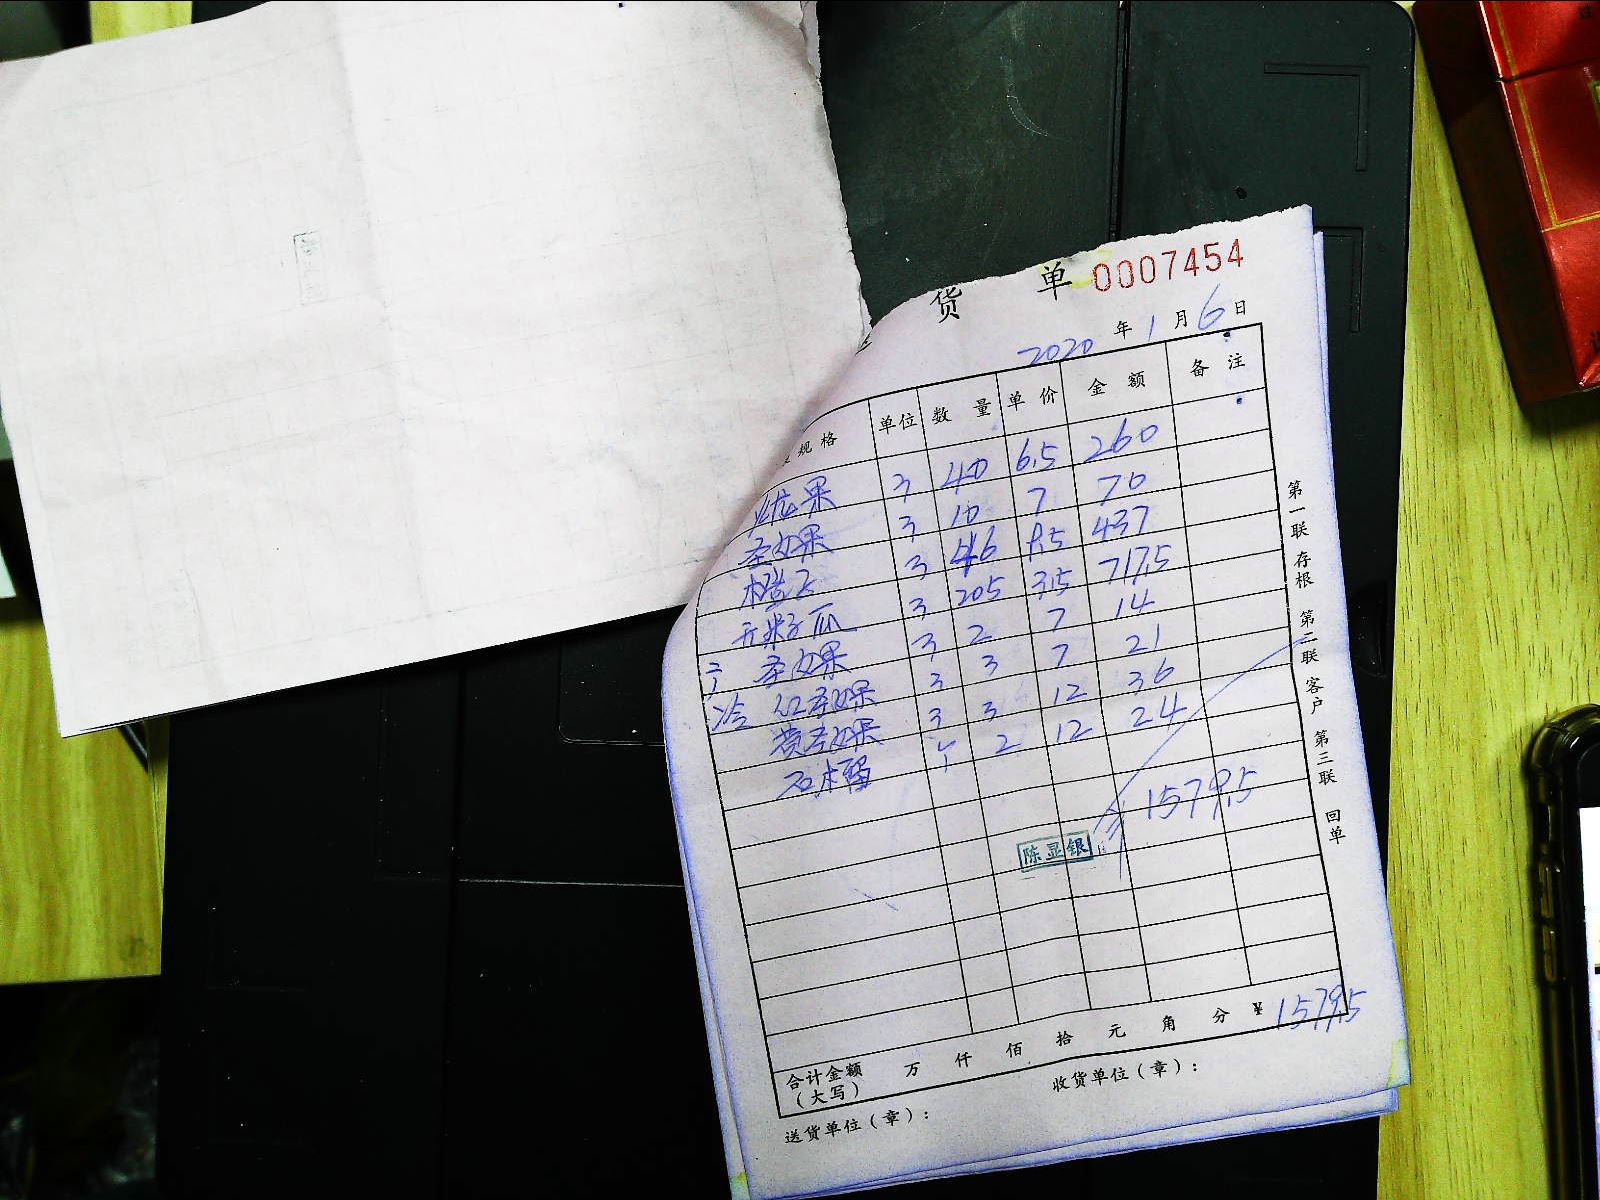 货 单 0007454
2020 年 1 月 6 日
规格 单位 数量 单价 金额 备注
果 3 40 6.5 260
圣女果 3 10 7 70
橙子 3 46 9.5 437
瓜 3 205 3.5 717.5
圣女果 3 2 7 14
红圣女果 3 3 7 21
黄圣女果 3 3 12 36
石榴 个 2 12 24
1579.5
陈显银
合计金额（大写） 万 仟 佰 拾 元 角 分 ¥ 1579.5
送货单位（章）： 收货单位（章）：
第一联 存根 第二联 客户 第三联 回单